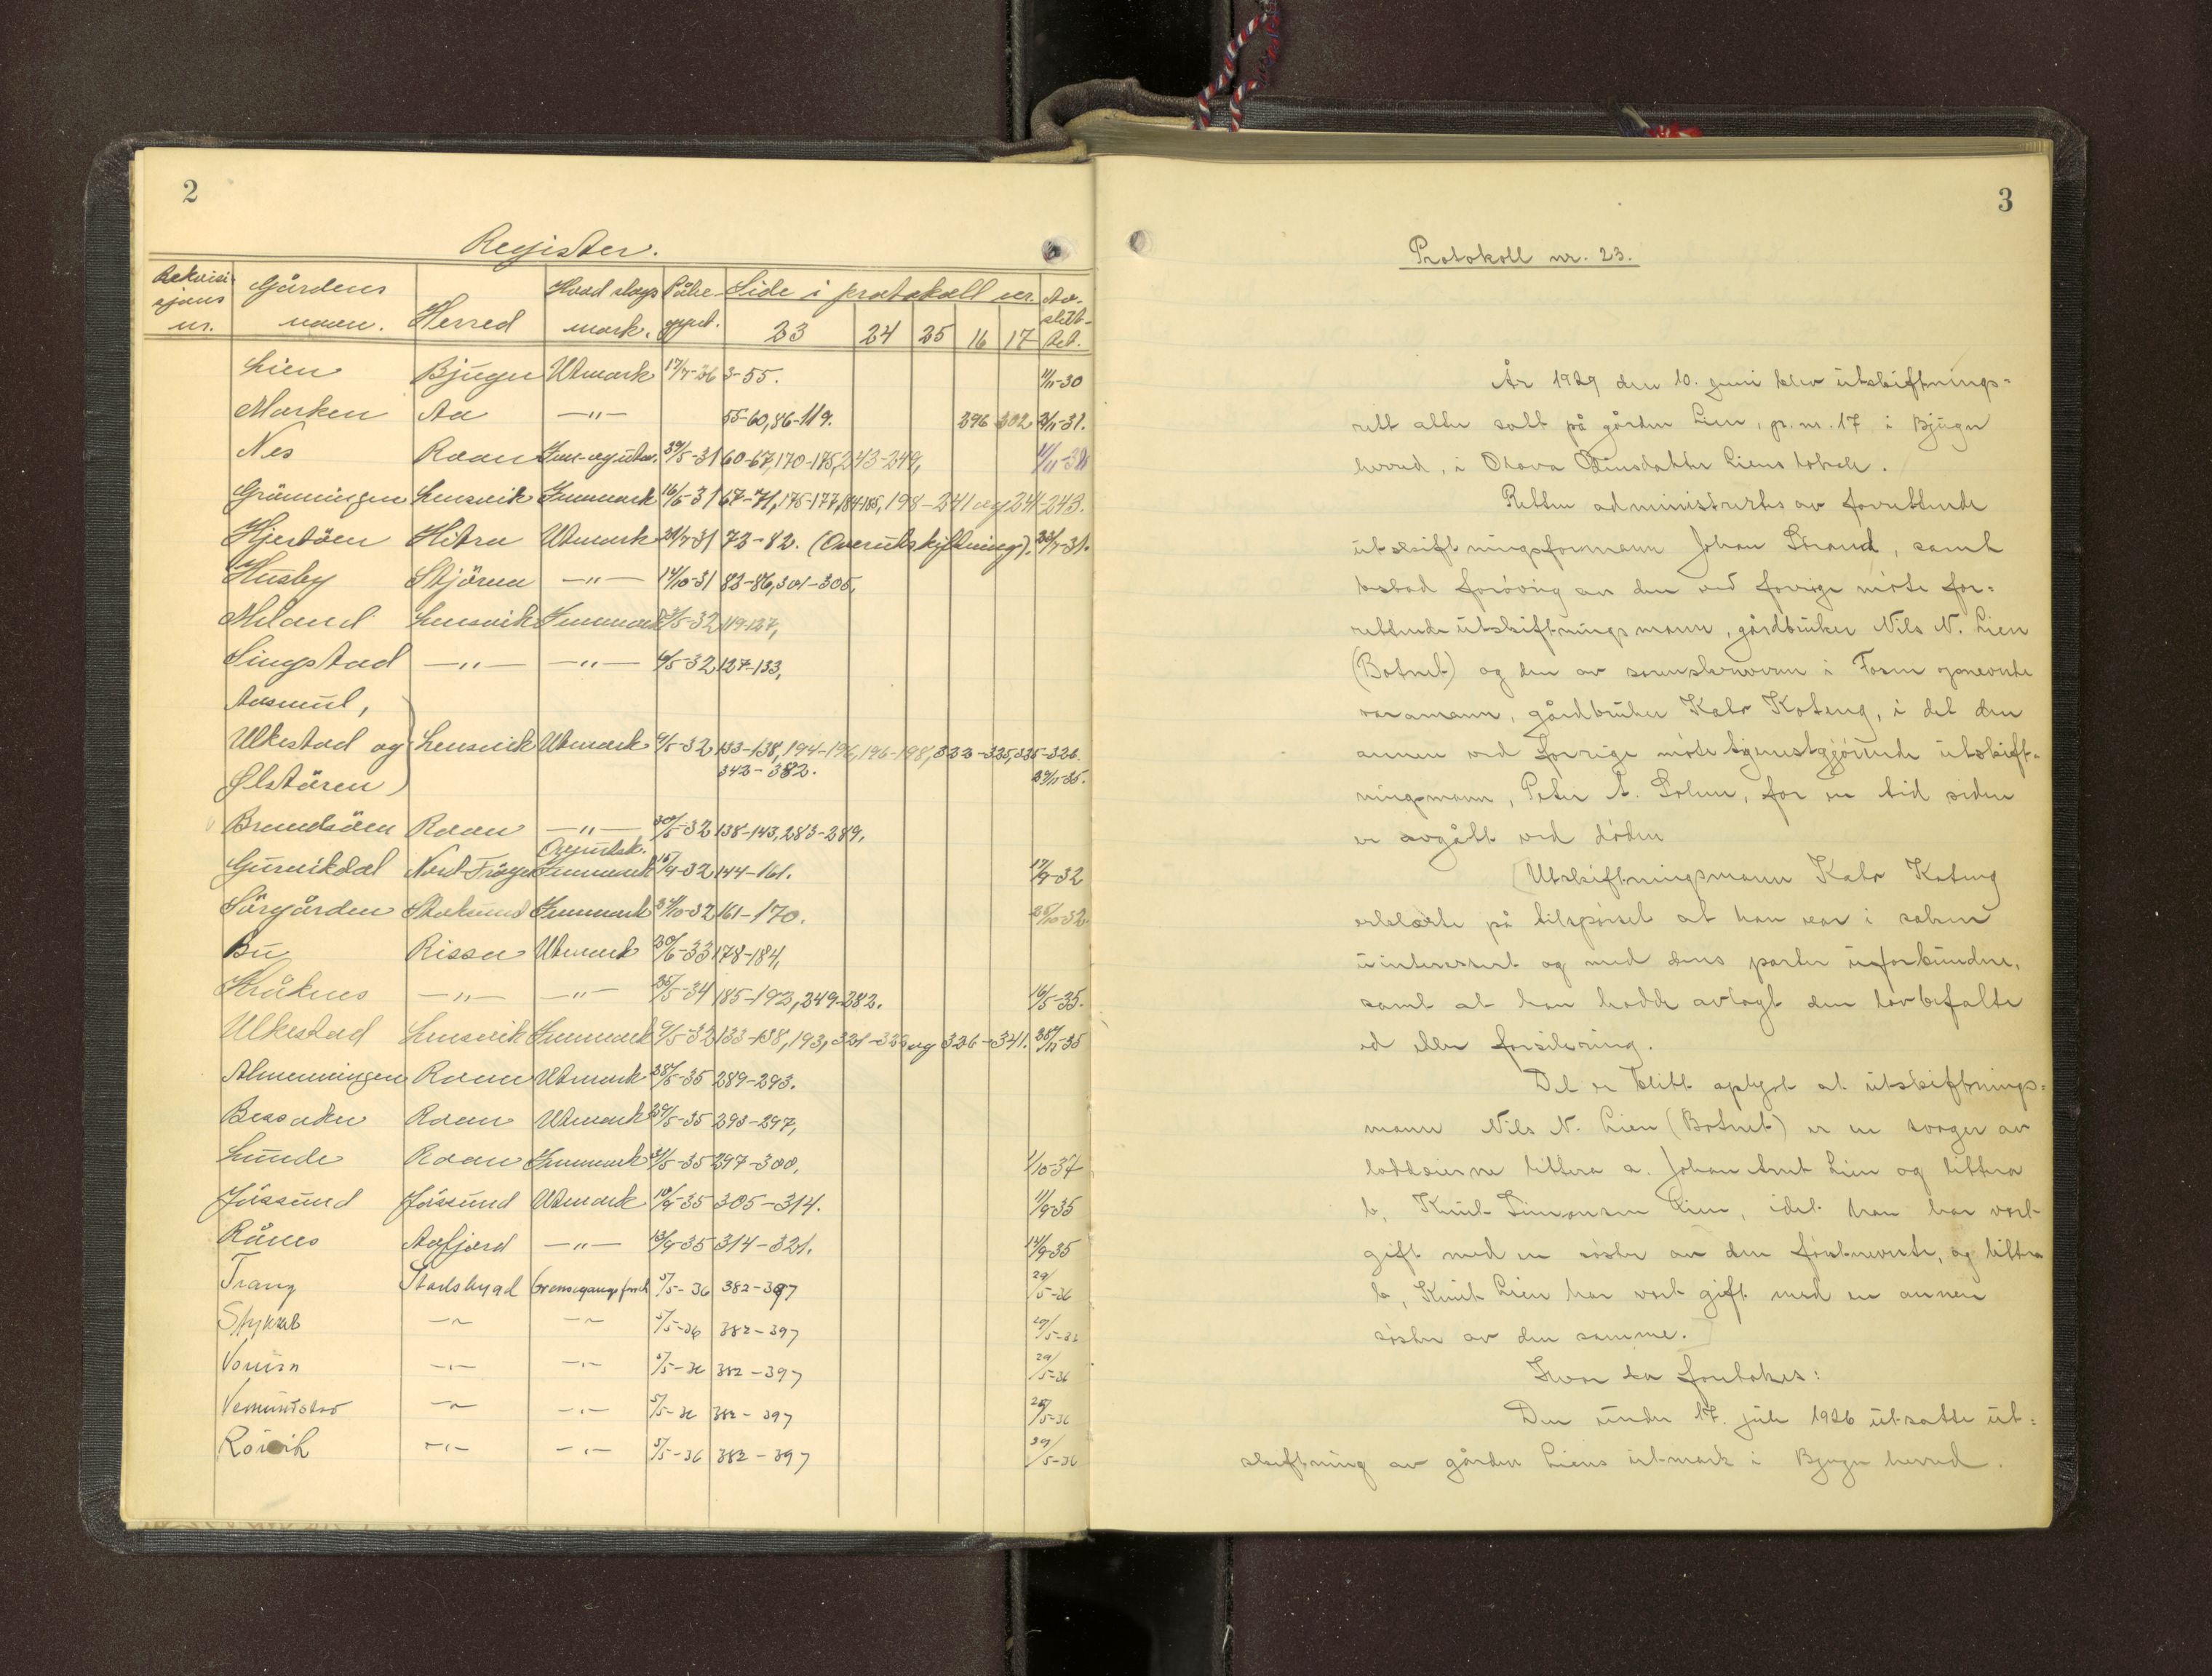 2
Register.
Rekvisi-
sjons
nr.
Gårdens
navn.
Herred
Hvad slags
mark.
Påbe-
gynt.
Side i protokoll nr.
23 24 25 16 17
Av-
slut-
tet.
Lien Bjugn Utmark 17/7-26 3-55. 11/11-30
Marken Aa —"— 55-60, 86-119. 296 302 3/11-31.
Nes Roan Inn- og utm. 30/5-31 60-67, 170-175, 243-249,
Grönningen Lensvik Innmark 16/6-31 67-71, 175-177, 184-185, 198-241 og 241-243.
Hjertöen Hitra Utmark 21/7-31 72-82. (Overutskiftning). 23/7-31.
Husby Stjörna —"— 14/10-31 83-86, 301-305,
Meland Lensvik Innmark 3/5-32 119-127,
Singstad —"— —"— 4/5-32 127-133,
Aasmul,
Ulkestad og Lensvik Utmark 9/5-32 133-138, 194-196, 196-198, 323-325, 325-326.
Ølstören 342-382. 29/11-35.
Brandsöen Roan —"— 30/5-32 138-143, 283-289,
Overutsk.
Gurvikdal Nord Fröya Innmark 15/9-32 144-161. 17/9-32
Sörgården Stoksund Innmark 24/10-32 161-170. 25/10-32
Bu Rissa Utmark 20/6-33 178-184,
Kråknes —"— —"— 25/5-34 185-193, 249-282. 16/5-35.
Ulkestad Lensvik Innmark 9/5-32 133-138, 193, 321-323 og 326-341. 28/11-35
Almenningen Roan Utmark 28/5-35 289-293.
Bessaker Roan Utmark 29/5-35 293-297,
Lunde Roan Innmark 31/5-35 297-300, 1/10-37
Jössund Jössund Utmark 10/9-35 305-314. 11/9-35
Rånes Aafjord —"— 13/9-35 314-321. 14/9-35
Trang Stadsbygd Grensegangsforr. 5/5-36 382-397 29/5-36
—"— —"— 5/5-36 382-397 29/5-36
—"— —"— 5/5-36 382-397 29/5-36
Vemundstad —"— —"— 5/5-36 382-397 29/5-36
Rövik —"— —"— 5/5-36 382-397 29/5-36
3
Protokoll nr. 23.
År 1929 den 10. juni blev utskiftnings=
rett atter satt på gården Lien, gr. nr. 17 i Bjugn
herred, i Olava Odinsdatter Liens lokale.
Retten administrertes av forrettende
utskiftningsformann Johan Strand, samt
bestod forøvrig av den ved forrige møte for=
rettende utskiftningsmann, gårdbruker Nils N. Lien
(Botnet) og den av sorenskriveren i Fosen opnevnte
varamann, gårdbruker Kalv Koteng, i det den
annen ved forrige møte tjenestgjørende utskift-
ningsmann, Peter A. Solem, for en tid siden
er avgått ved døden
Utskiftningsmann Kalv Koteng
erklærte på tilspørsel at han var i saken
uinteressert og med dens parter uforbunden,
samt at han hadde avlagt den lovbefalte
ed eller forsikring.
Det er blitt oplyst at utskiftnings=
mann Nils N. Lien (Botnet) er en svoger av
loddeierne littera a. Johan Arnt Lien og littera
b, Knut Simonsen Lien, idet han har vært
gift med en søster av den førstnevnte, og littera
b, Knut Lien har vært gift med en annen
søster av den samme.
Hvor da foretokes:
Den under 17. juli 1926 utsatte ut=
skiftning av gården Liens utmark i Bjugn herred.